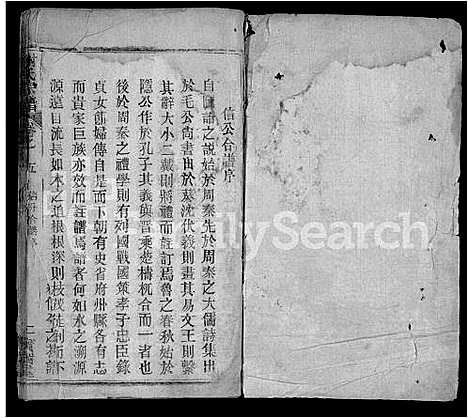 信公合譜序
自圖譜之說始於周秦先於周秦之大儒詩集出
於毛公尚書出於蔡沈伏羲則畫其易文王則繫
其辭大小二戴則將禮而註訂焉魯之春秋始於
隱公作於孔子其義與晉乘楚檮杌合而一者也
後於周秦之禮學則有列國戰國策孝子忠臣錄
貞女節婦傳自是而下朝有史省府州縣各有志
而貴家巨族亦效而註譜焉譜者何如水之溯源
源遠目流長如木之追根根深則枝茂
氏宗譜
卷之五
FamilySearch